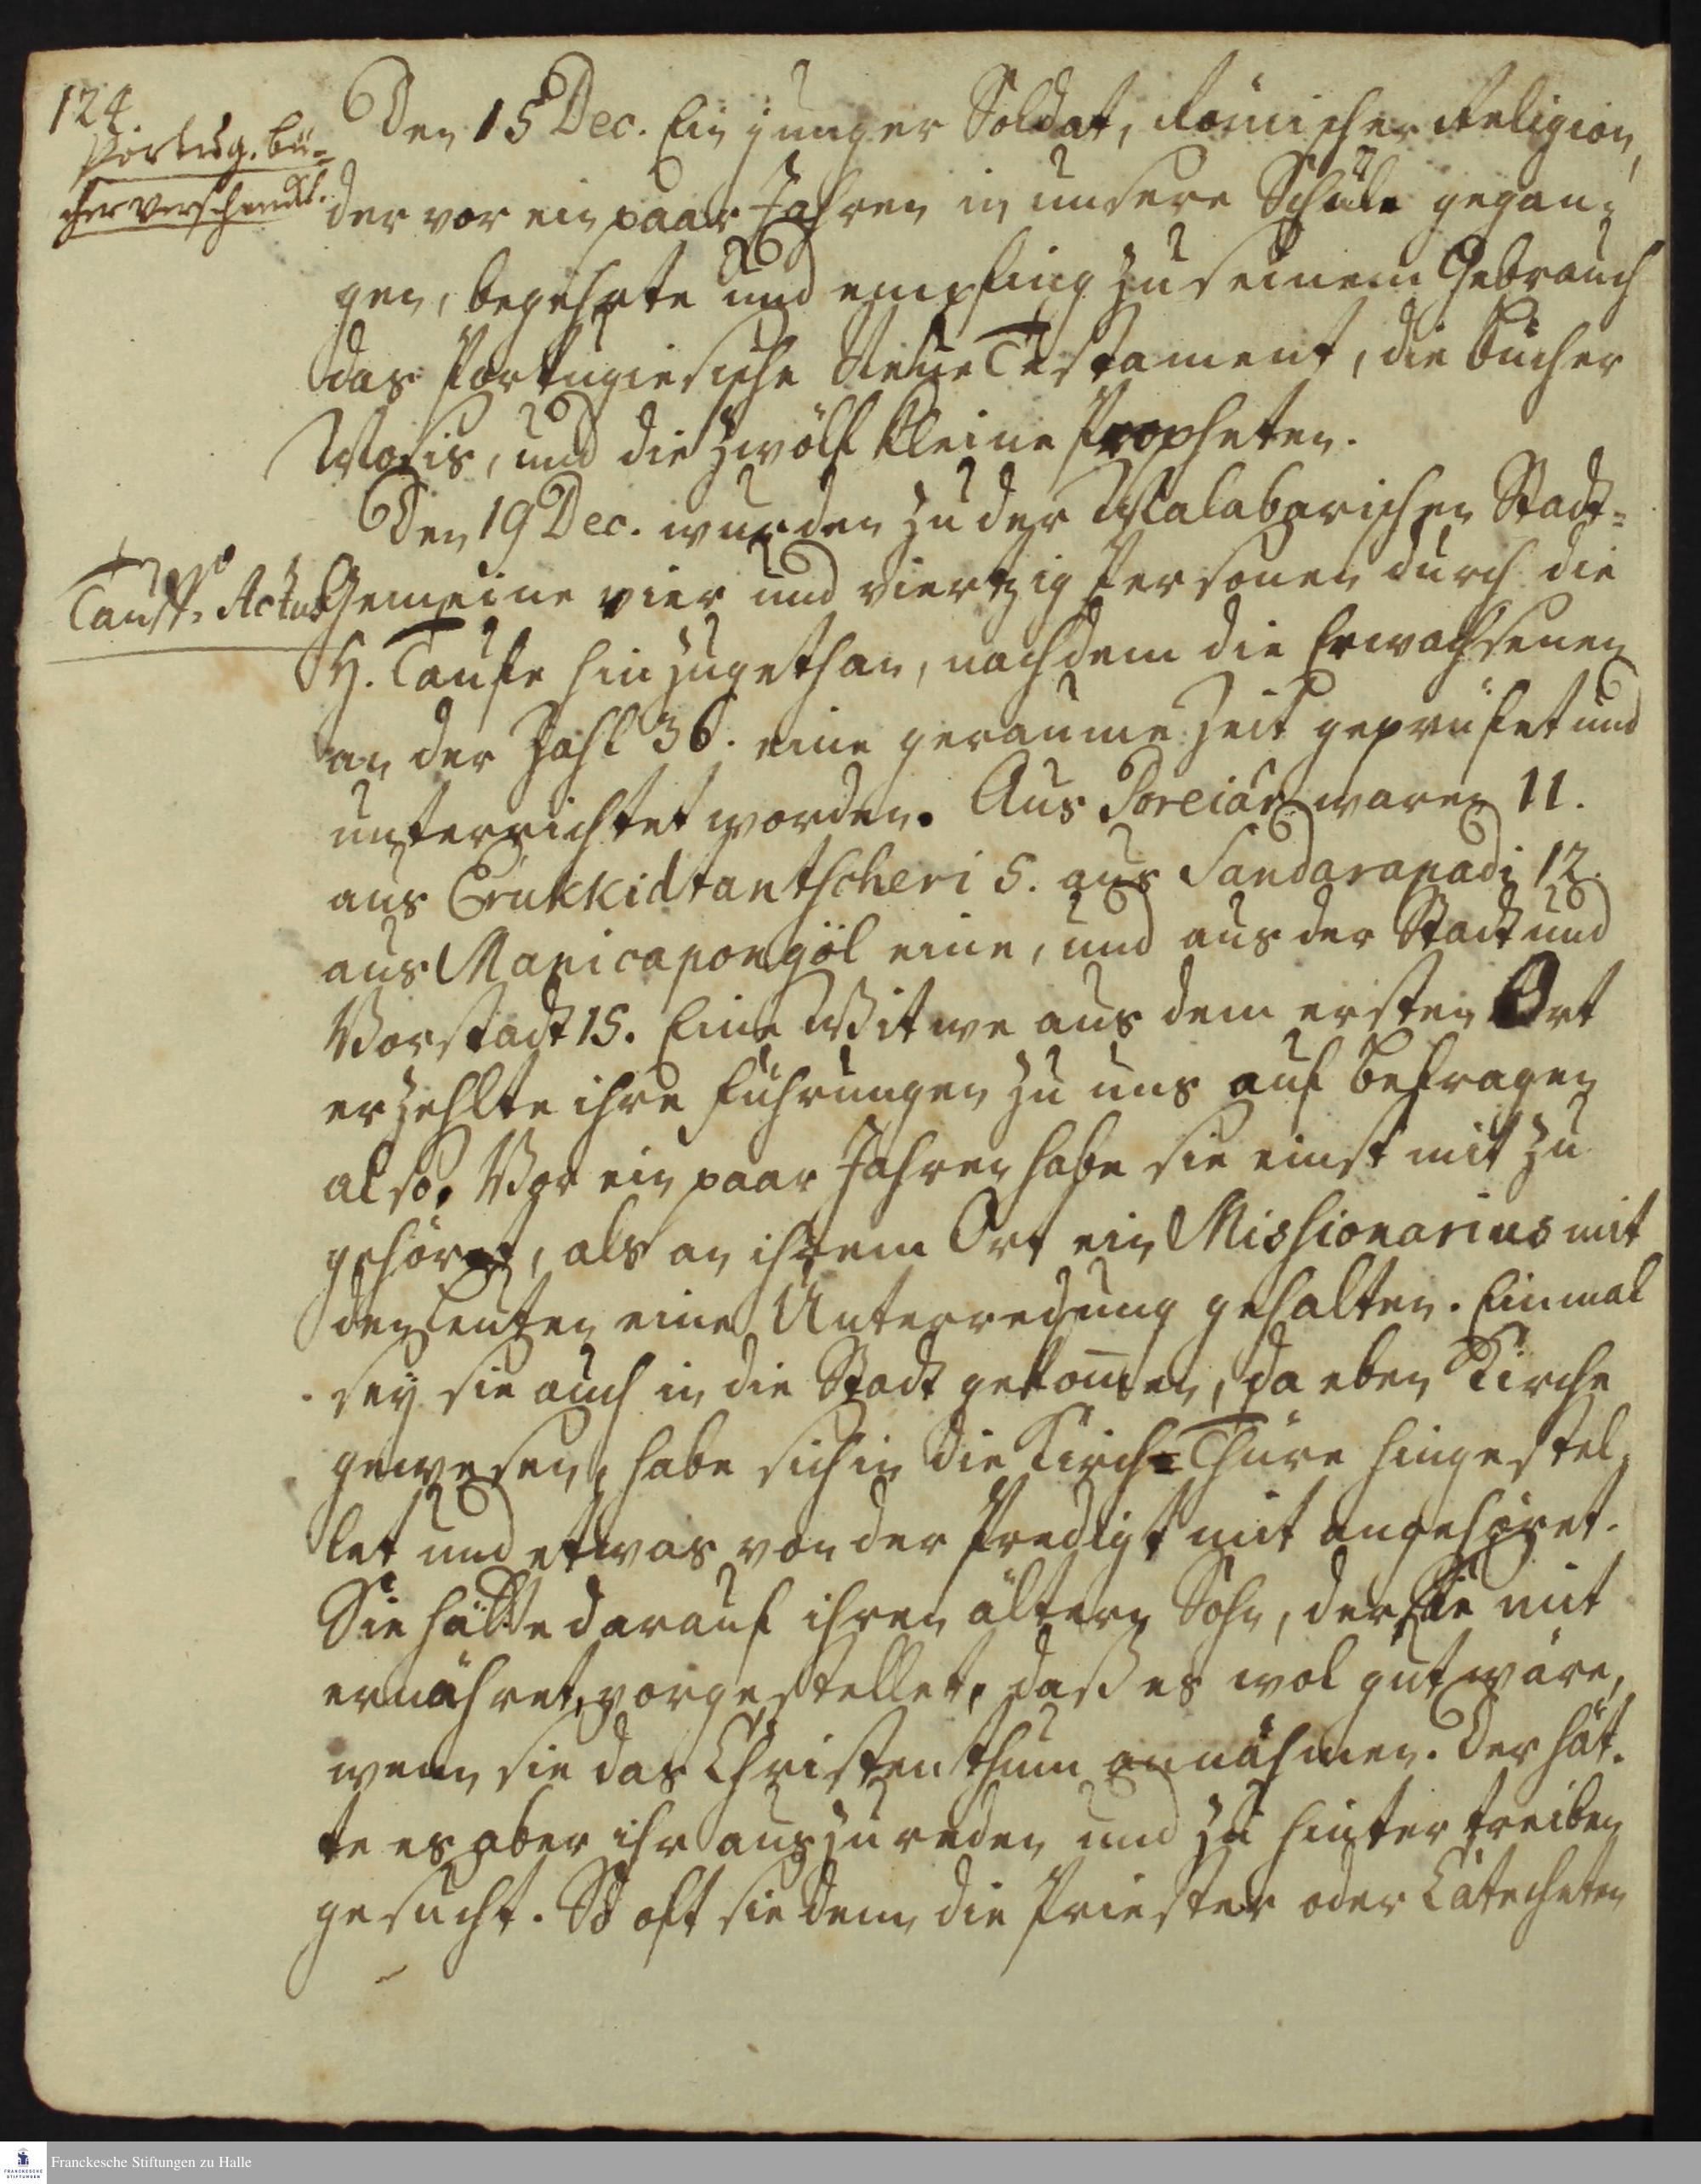 124
Portug. Bü-
cher verschenckt.
Den 15 Dec. Ein junger Soldat, Römischer Religion,
der vor ein paar Jahren in unsere Schule gegan-
gen, begehrte und empfing zu seinem Gebrauch
das Portugiesische Neue Testament, die Bücher
Mosis, und die zwölf kleine Propheten.
Den 19 Dec. wurden zu der Malabarischen Stadt-
Tauff-Actus
Gemeine vier und viertzig Personen durch die
H. Taufe hinzugethan, nachdem die Erwachsenen
an der Zahl 36. eine geraume Zeit geprüfet und
unterrichtet worden. Aus Poreiar waren 11.
aus Erukkidtantscheri 5. aus Sandarapadi 12.
aus Manicapongöl eine, und aus der Stadt und
Vorstadt 15. Eine Witwe aus dem ersten Ort
erzehlte ihre Führungen zu uns auf Befragen
also. Vor ein paar Jahren habe sie einst mit zu
gehöret, als an ihrem Ort ein Missionarius mit
den Leuten eine Unterredung gehalten. Einmal
sey sie auch in die Stadt gekom̅en, da eben Kirche
gewesen, habe sich in die Kirch-Thüre hingestel-
let und etwas von der Predigt mit angehöret.
Sie hätte darauf ihren ältern Sohn, der sie mit
ernähret, vorgestellet, daß es wol gut wäre,
wenn sie das Christenthum annähmen. Der hät-
te es aber ihr auszureden und zu hintertreiben
gesucht. So oft sie denn die Priester oder Catecheten
Franckesche Stiftungen zu Halle
FRANCKESCHE
STIFTUNGEN